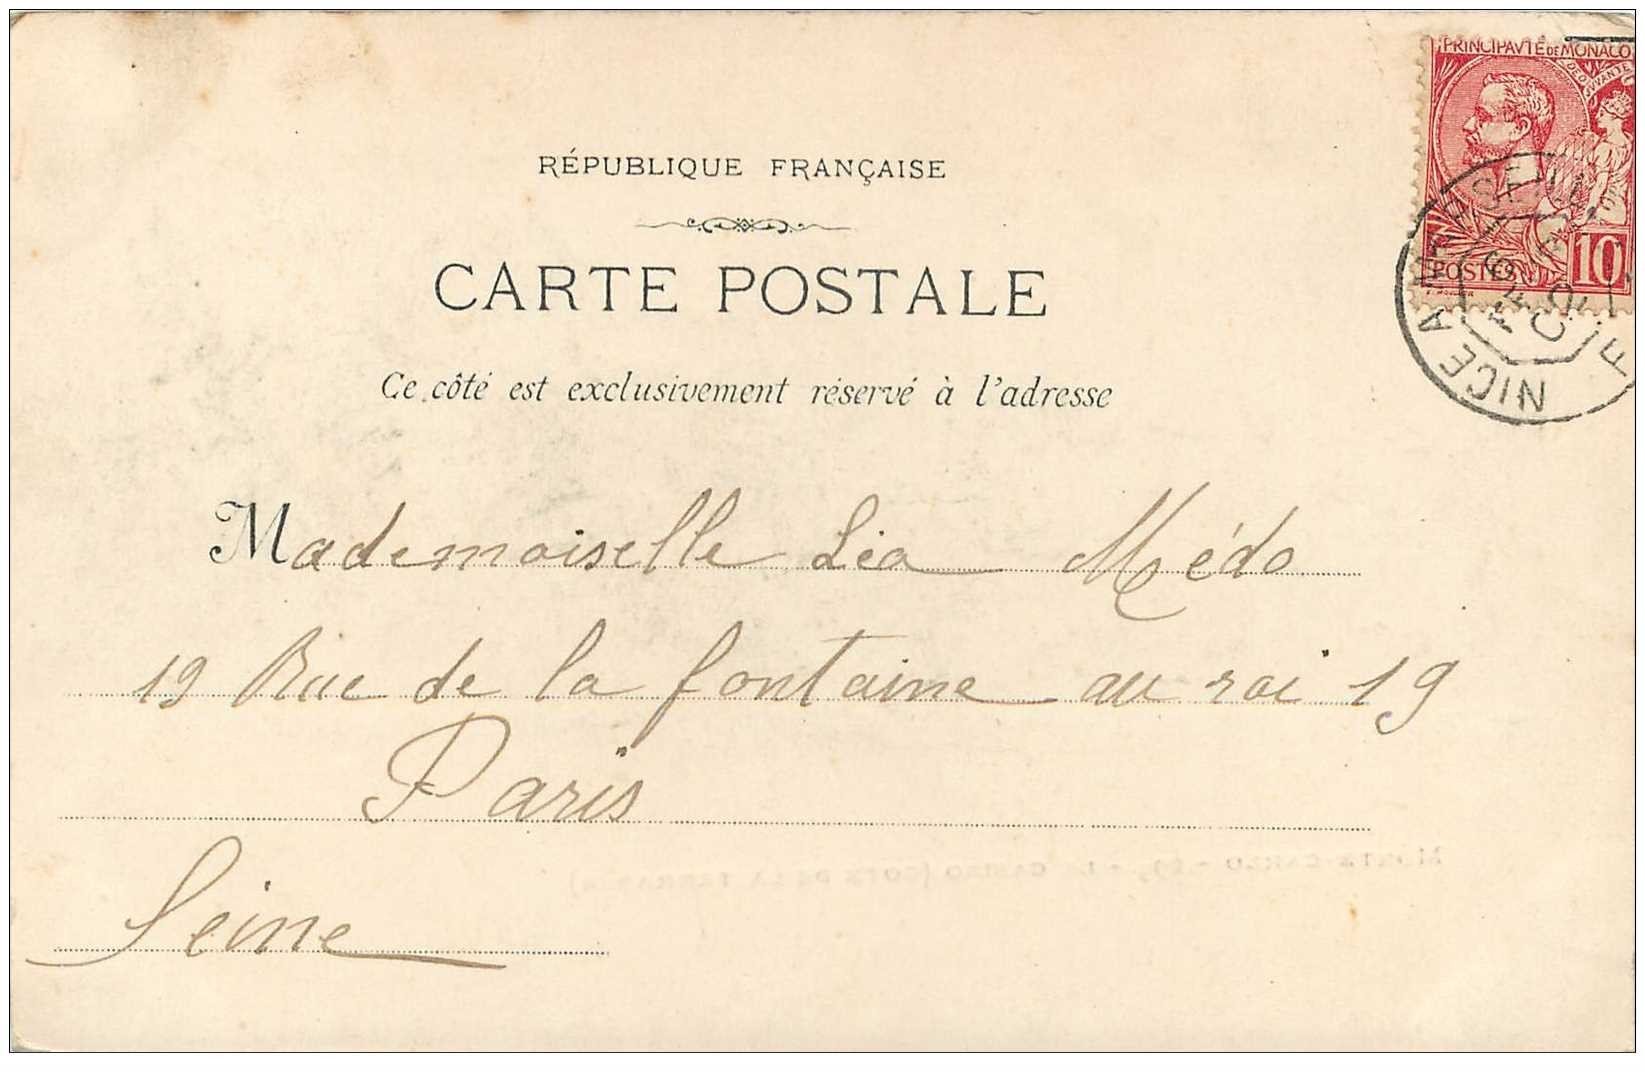 PRINCIPAVTÉ DE MONACO
POSTES
10
NICE A
RÉPUBLIQUE FRANÇAISE
CARTE POSTALE
Ce côté est exclusivement réservé à l'adresse
Mademoiselle Léa Médo
19 Rue de la fontaine au roi 19
Paris
Seine